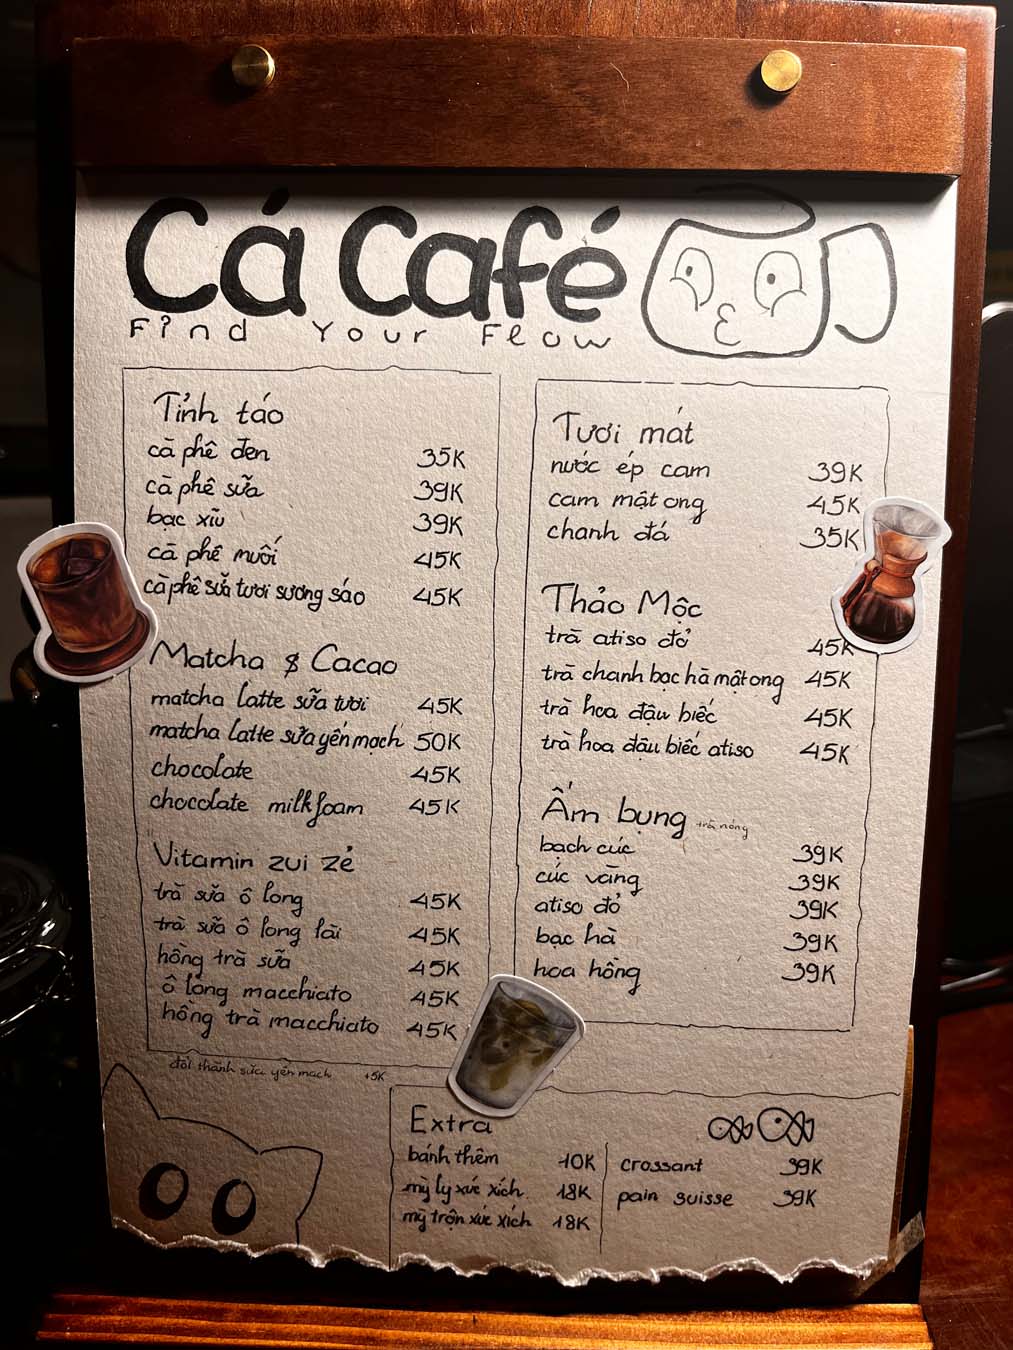 Cá Café
Find Your Flow
Tỉnh táo
cà phê đen 35K
cà phê sữa 39K
bạc xỉu 39K
cà phê muối 45K
cà phê sữa tươi sương sáo 45K
Matcha & Cacao
matcha latte sữa tươi 45K
matcha latte sữa yến mạch 50K
chocolate 45K
chocolate milkfoam 45K
Vitamin zui zẻ
trà sữa ô long 45K
trà sữa ô long lài 45K
hồng trà sữa 45K
ô long macchiato 45K
hồng trà macchiato 45K
đổi thành sữa yến mạch +5K
Tươi mát
nước ép cam 39K
cam mật ong 45K
chanh đá 35K
Thảo Mộc
trà atiso đỏ 45K
trà chanh bạc hà mật ong 45K
trà hoa đậu biếc 45K
trà hoa đậu biếc atiso 45K
Ấm bụng trà nóng
bạch cúc 39K
cúc vàng 39K
atiso đỏ 39K
bạc hà 39K
hoa hồng 39K
Extra
bánh thêm 10K
mỳ ly xúc xích 18K
mỳ trộn xúc xích 18K
crossant 39K
pain suisse 39K